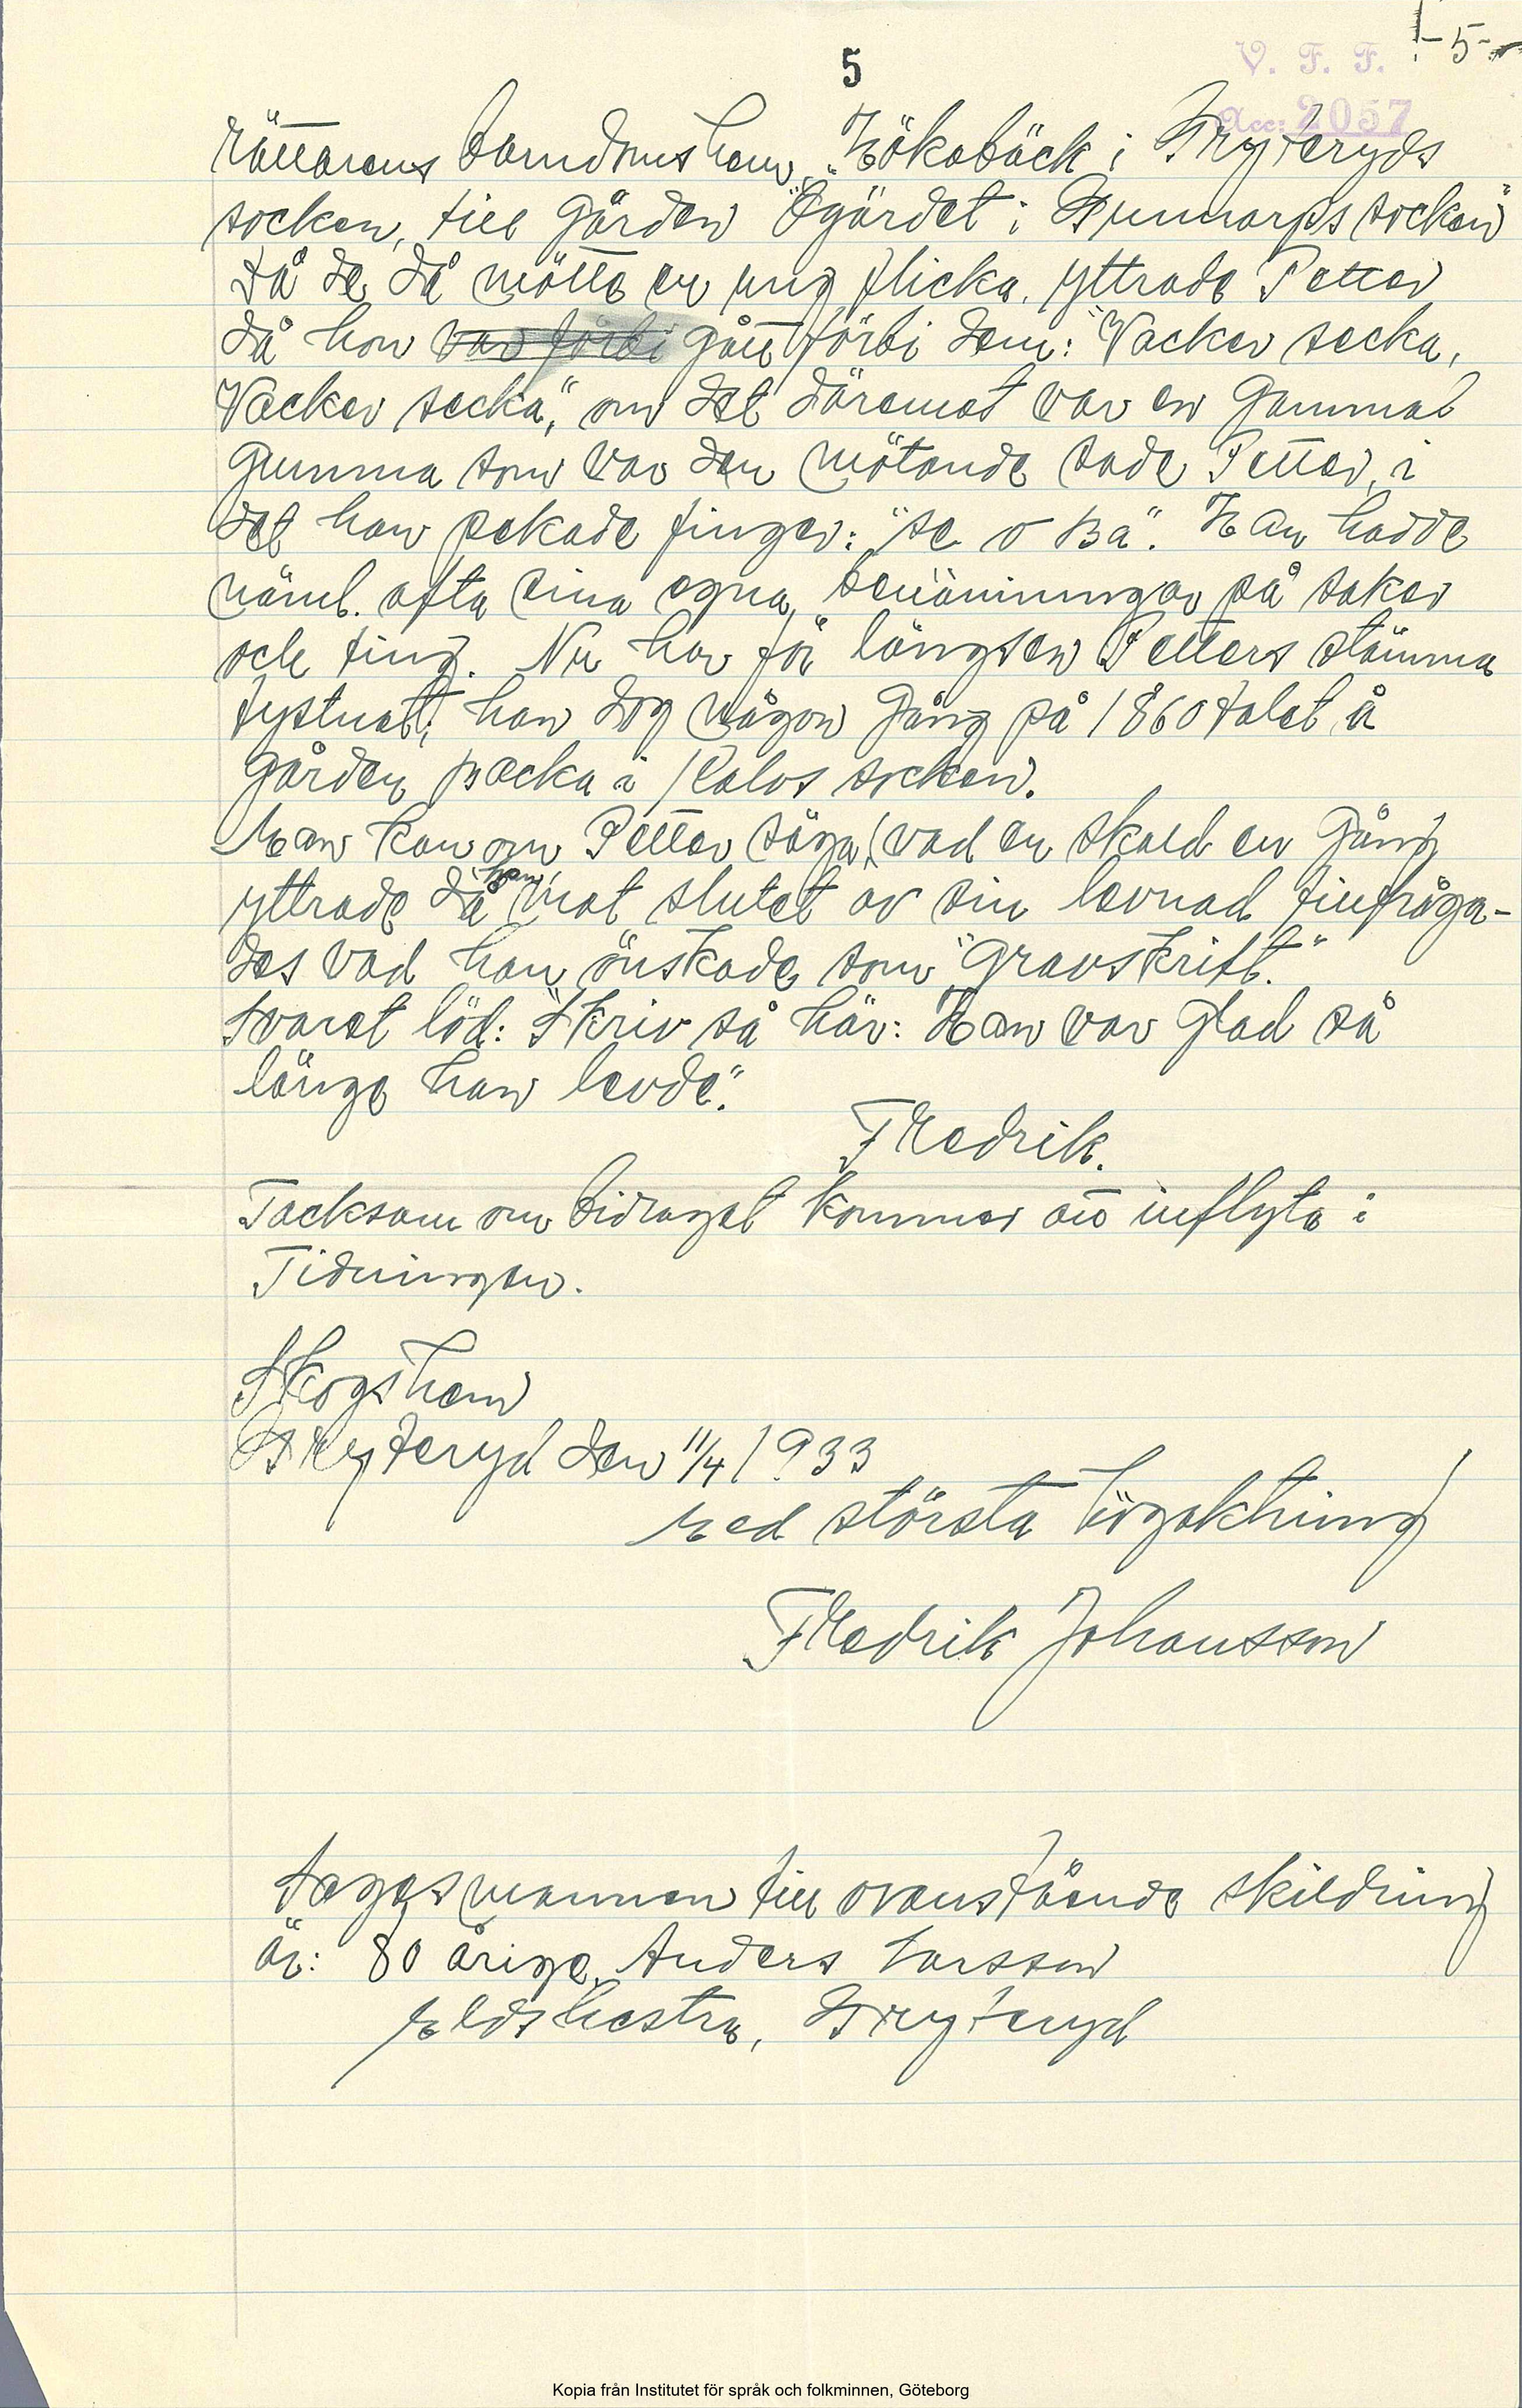 5
V. F. F.
-5-
Acc: 2057
rättarens barndomshem "Hökabäck i Gryteryds
socken, till gården "Ögärdet i Gunnarps socken"
Då de då mötte en ung flicka, yttrade Petter
då hon var förbi gått förbi dem: "Vacker secka,
Vacker secka," om det däremot var en gammal
gumma som var den mötande sade Petter, i
det han pekade finger: "se o bä". Han hadde
näml. ofta sina egna benämningar på saker
och ting. Nu har för längsen Petters stämma
tystnat; han dog någon gång på 1860 talet å
gården Bæcka i Kalvs socken.
Man kan om Petter säga, vad en skald en gång
yttrade då han mot slutet av sin levnad tillfråga-
des vad han önskade som "gravskrift."
Svaret löd: "Skriv så här: Han var glad så
länge han levde".
Fredrik.
Tacksam om bidraget kommer att inflyta i
Tidningen.
Skogshem
Gryteryd den 11/4 1933
Med största högaktning
Fredrik Johansson
Sagesmannen till ovanstående skildring
är: 80 årige Anders Larsson
Mldshestra, Gryteryd
Kopia från Institutet för språk och folkminnen, Göteborg